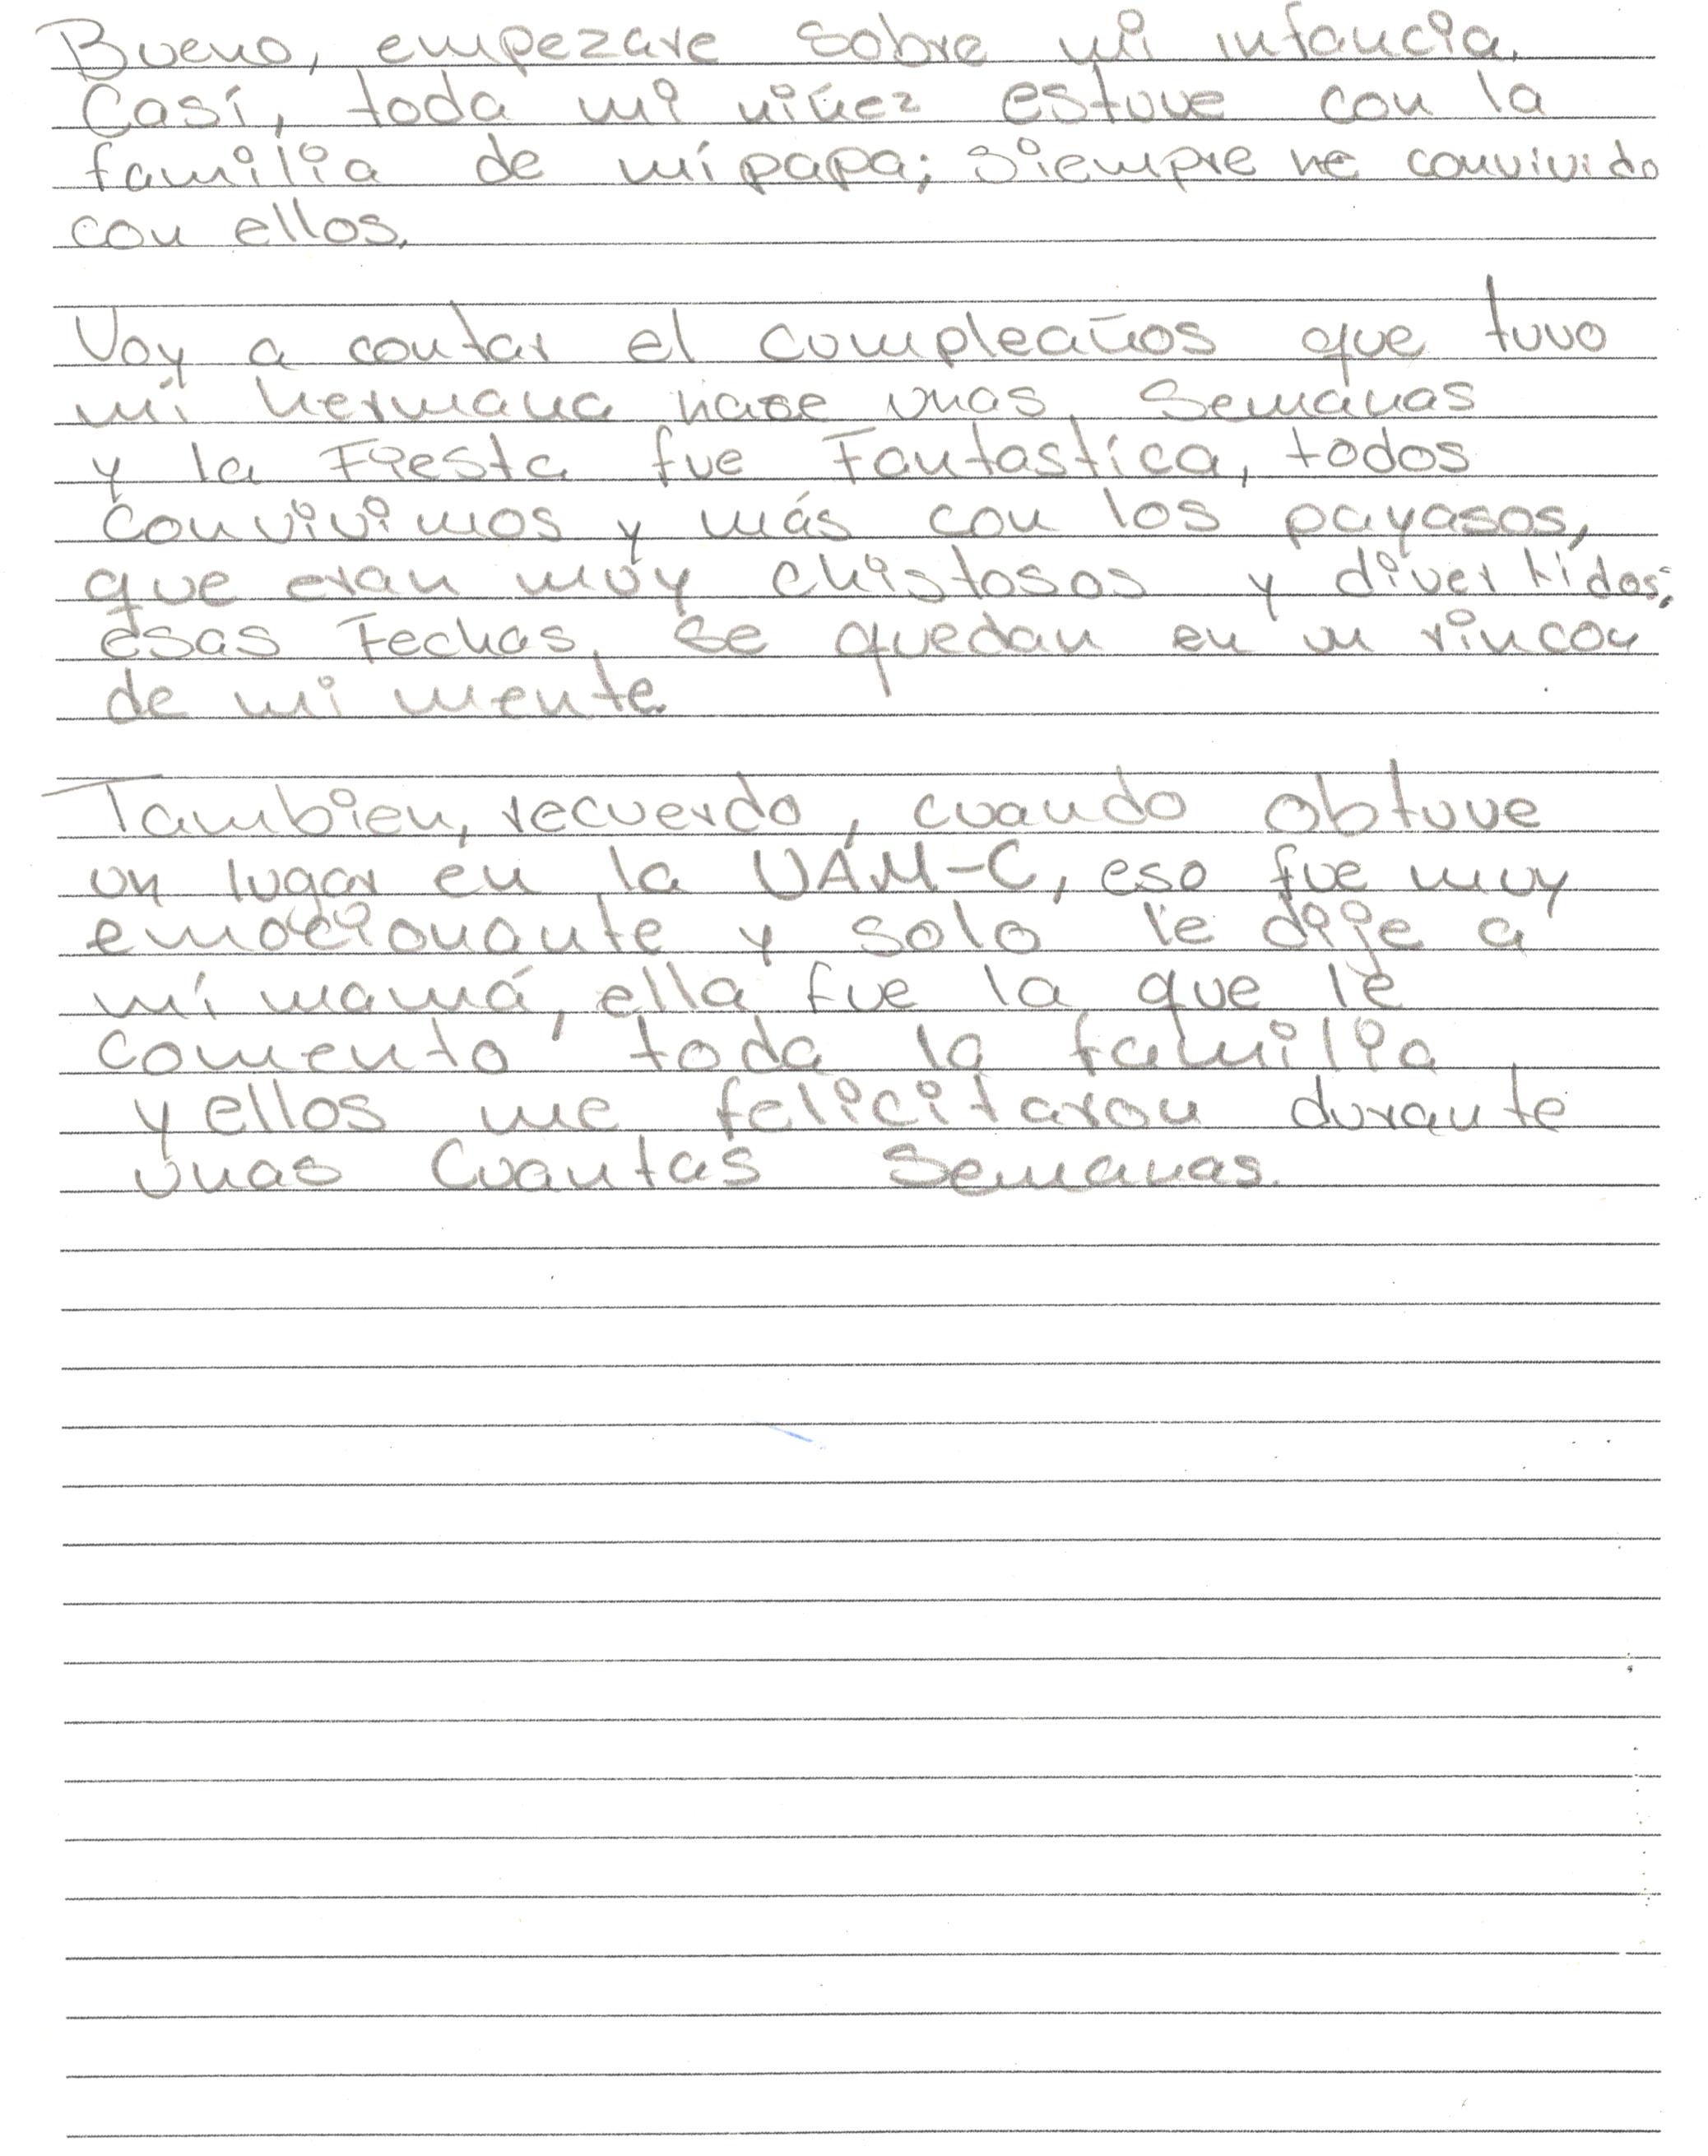 Bueno, empezare sobre mi infancia.
Casí, toda mi niñez estuve con la
familia de mí papa; siempre he convivido
con ellos.
Voy a contar el cumpleaños que tuvo
mí hermana hase unas semanas
y la Fiesta fue Fantastica, todos
convivimos y más con los payasos,
que eran muy chistosos y divertidos;
esas Fechas, se quedan en un rincon
de mi mente.
Tambien, recuerdo, cuando obtuve
un lugar en la UAM-C, eso fue muy
emocionante y solo le dije a
mí mamá, ella fue la que le
comento toda la familia
y ellos me felicitaron durante
unas cuantas semanas.